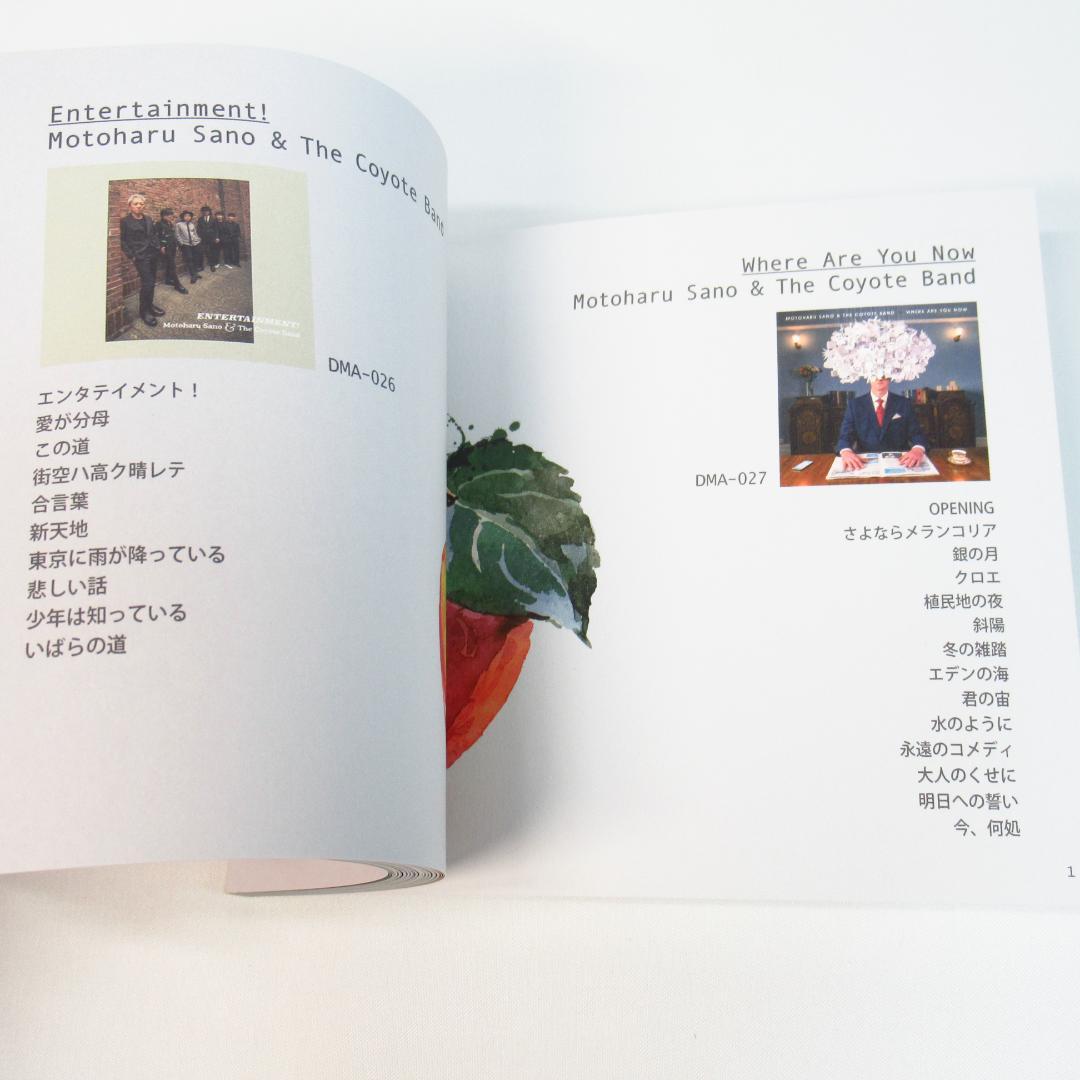 Entertainment!
Motoharu Sano & The Coyote Band
ENTERTAINMENT!
Motoharu Sano & The Coyote Band
DMA-026
エンタテイメント！
愛が分母
この道
街空ハ高ク晴レテ
合言葉
新天地
東京に雨が降っている
悲しい話
少年は知っている
いばらの道
Where Are You Now
Motoharu Sano & The Coyote Band
MOTOHARU SANO & THE COYOTE BAND WHERE ARE YOU NOW
DMA-027
OPENING
さよならメランコリア
銀の月
クロエ
植民地の夜
斜陽
冬の雑踏
エデンの海
君の宙
水のように
永遠のコメディ
大人のくせに
明日への誓い
今、何処
1